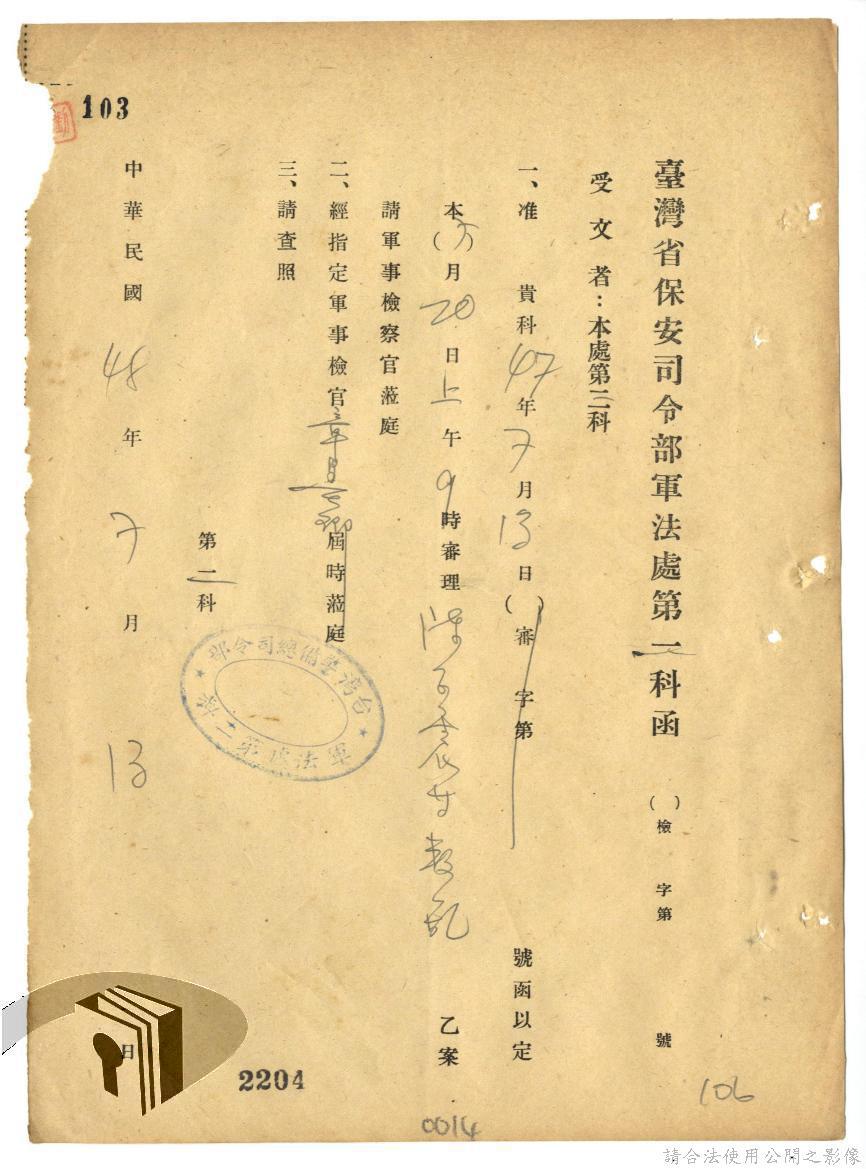 臺灣省保安司令部軍法處第二科函 ( )檢 字第 號
受文者:本處第三科
一、准 貴科47年7月13日( )審字第 號函以定
本(7)月20日上午9時審理 叛乱 乙案
請軍事檢察官蒞庭
二、經指定軍事檢官 屆時蒞庭
三、請查照
第二科
中華民國48年7月13日
台灣警備總司令部
軍法處第二科
103
2204
0014
106
請合法使用公開之影像